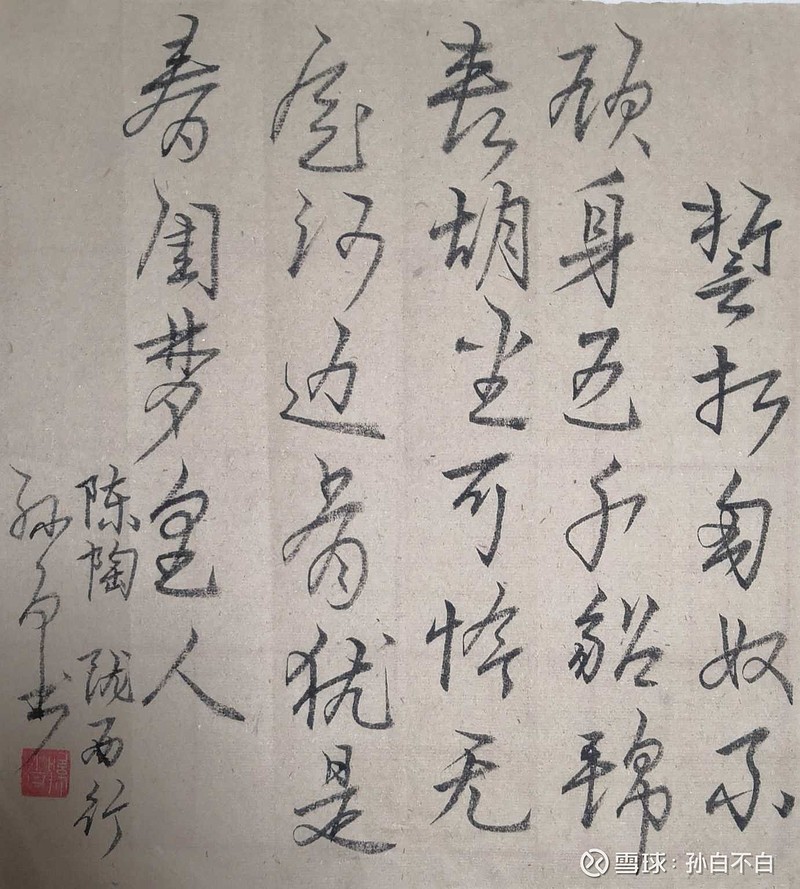 誓扫匈奴不
顾身五千貂锦
丧胡尘可怜无
定河边骨犹是
春闺梦里人
陈陶 陇西行
孙书
雪球：孙白不白